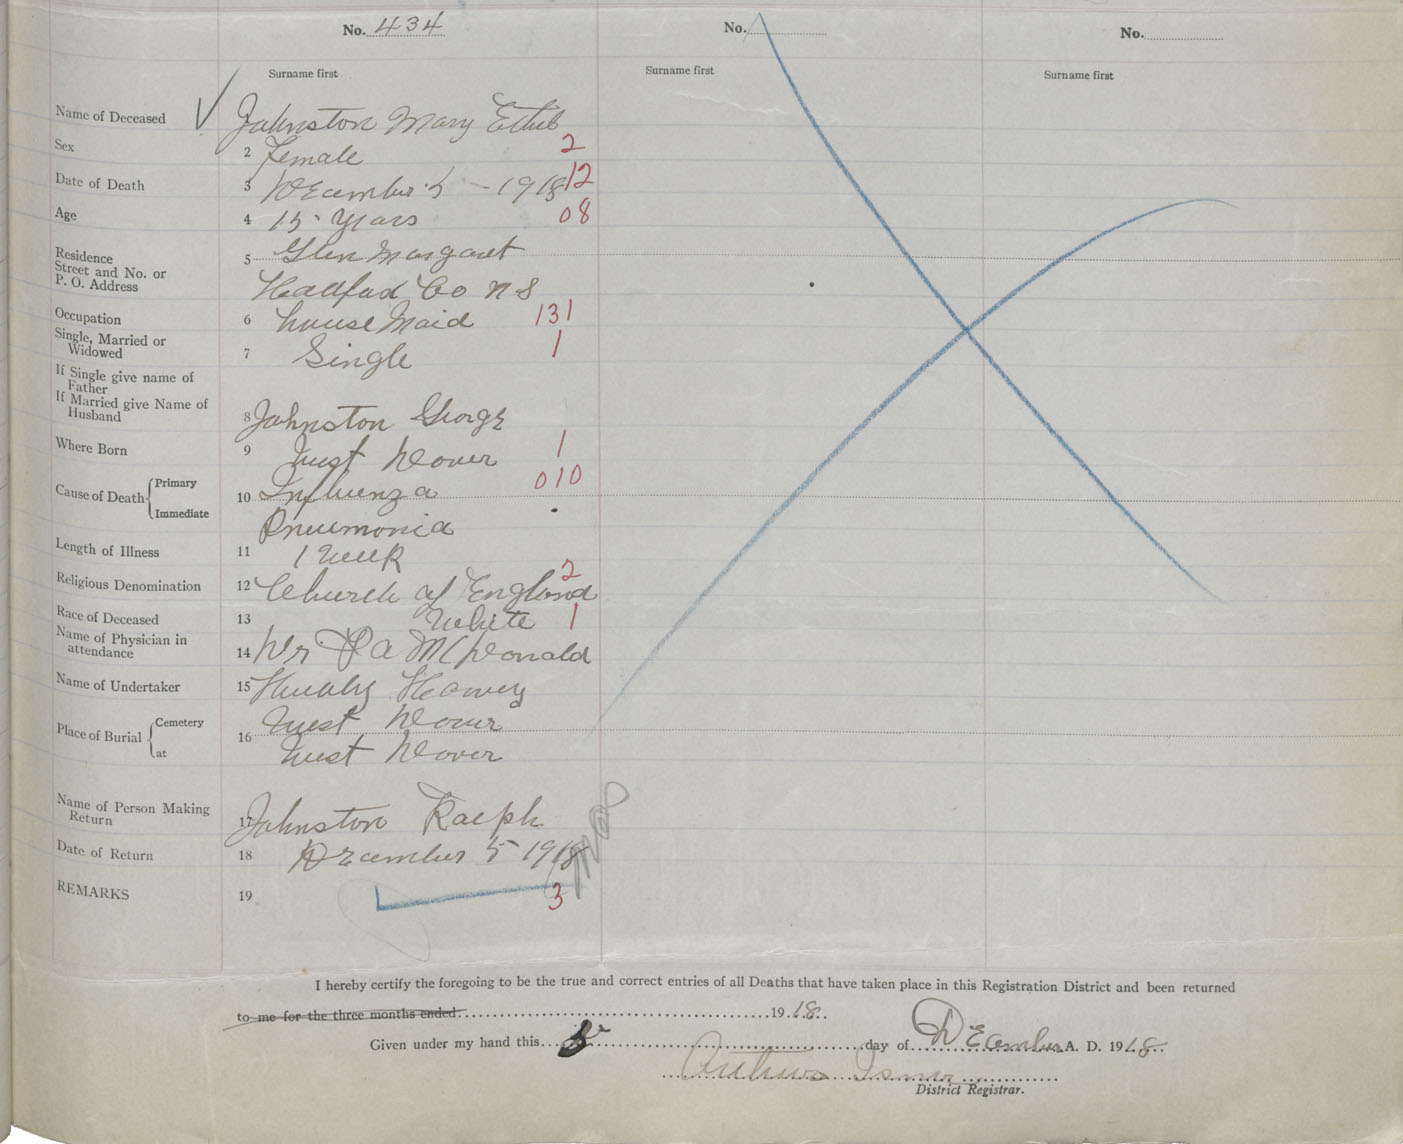 No. 434
No.
No.
Surname first
Surname first
Surname first
Name of Deceased Johnston Mary Ethel
Sex 2 Female 2
Date of Death 3 December 5 - 1918 12
Age 4 15 Years 08
Residence
Street and No. or
P. O. Address
5 Glen Margaret
Halifax Co N S
Occupation 6 house Maid 131
Single, Married or
Widowed 7 Single 1
If Single give name of
Father
If Married give Name of
Husband 8 Johnston George
Where Born 9 West Dover 1
Cause of Death Primary 10 Influenza 010
Immediate Pneumonia
Length of Illness 11 1 Week
Religious Denomination 12 Church of England 2
Race of Deceased 13 White 1
Name of Physician in
attendance 14 Dr A McDonald
Name of Undertaker 15
Place of Burial Cemetery 16 West Dover
at West Dover
Name of Person Making
Return 17 Johnston Ralph
Date of Return 18 December 5 1918
REMARKS 19 3
I hereby certify the foregoing to be the true and correct entries of all Deaths that have taken place in this Registration District and been returned
to me for the three months ended 1918
Given under my hand this day of December A. D. 1918
District Registrar.